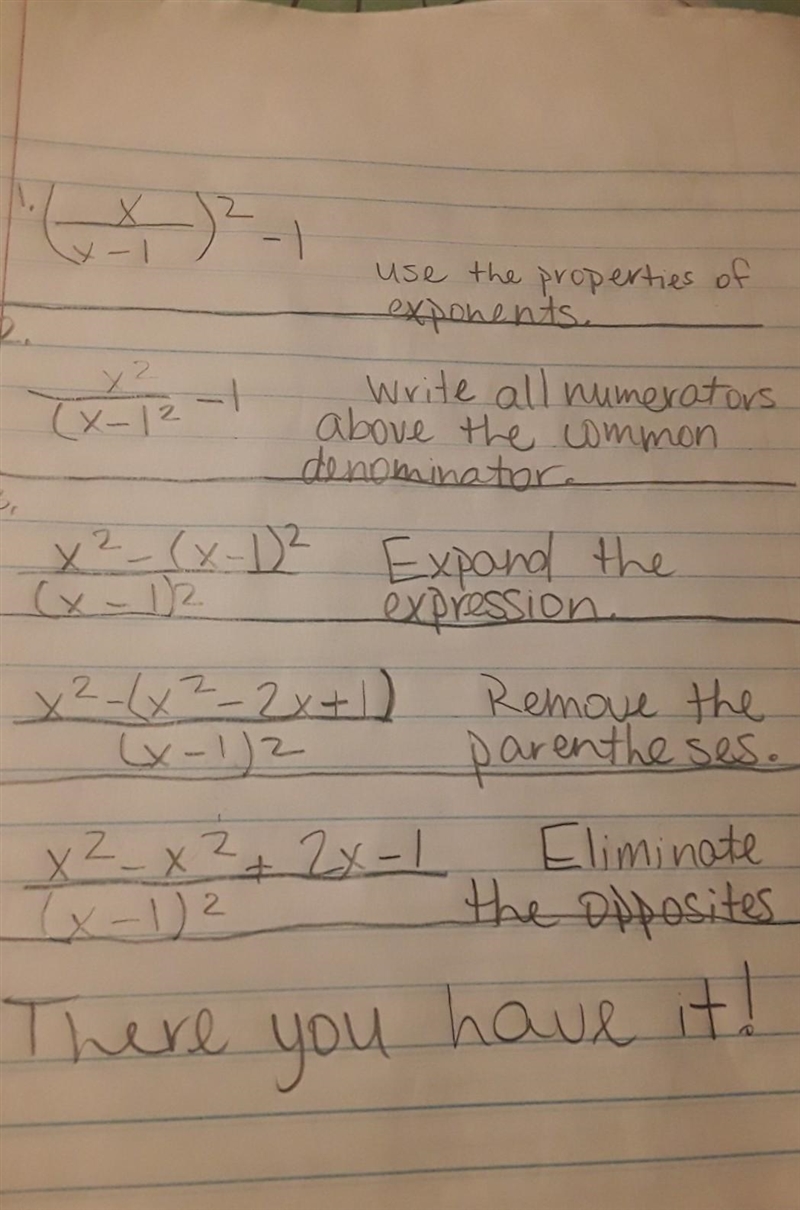 1. (x/(x-1))² - 1
use the properties of
exponents.
2.
x²/(x-1² - 1
Write all numerators
above the common
denominator.
x² - (x-1)²/(x-1)²
Expand the
expression.
x² - (x² - 2x + 1)/(x-1)²
Remove the
parentheses.
x² - x² + 2x - 1/(x-1)²
Eliminate
the opposites
There you have it!